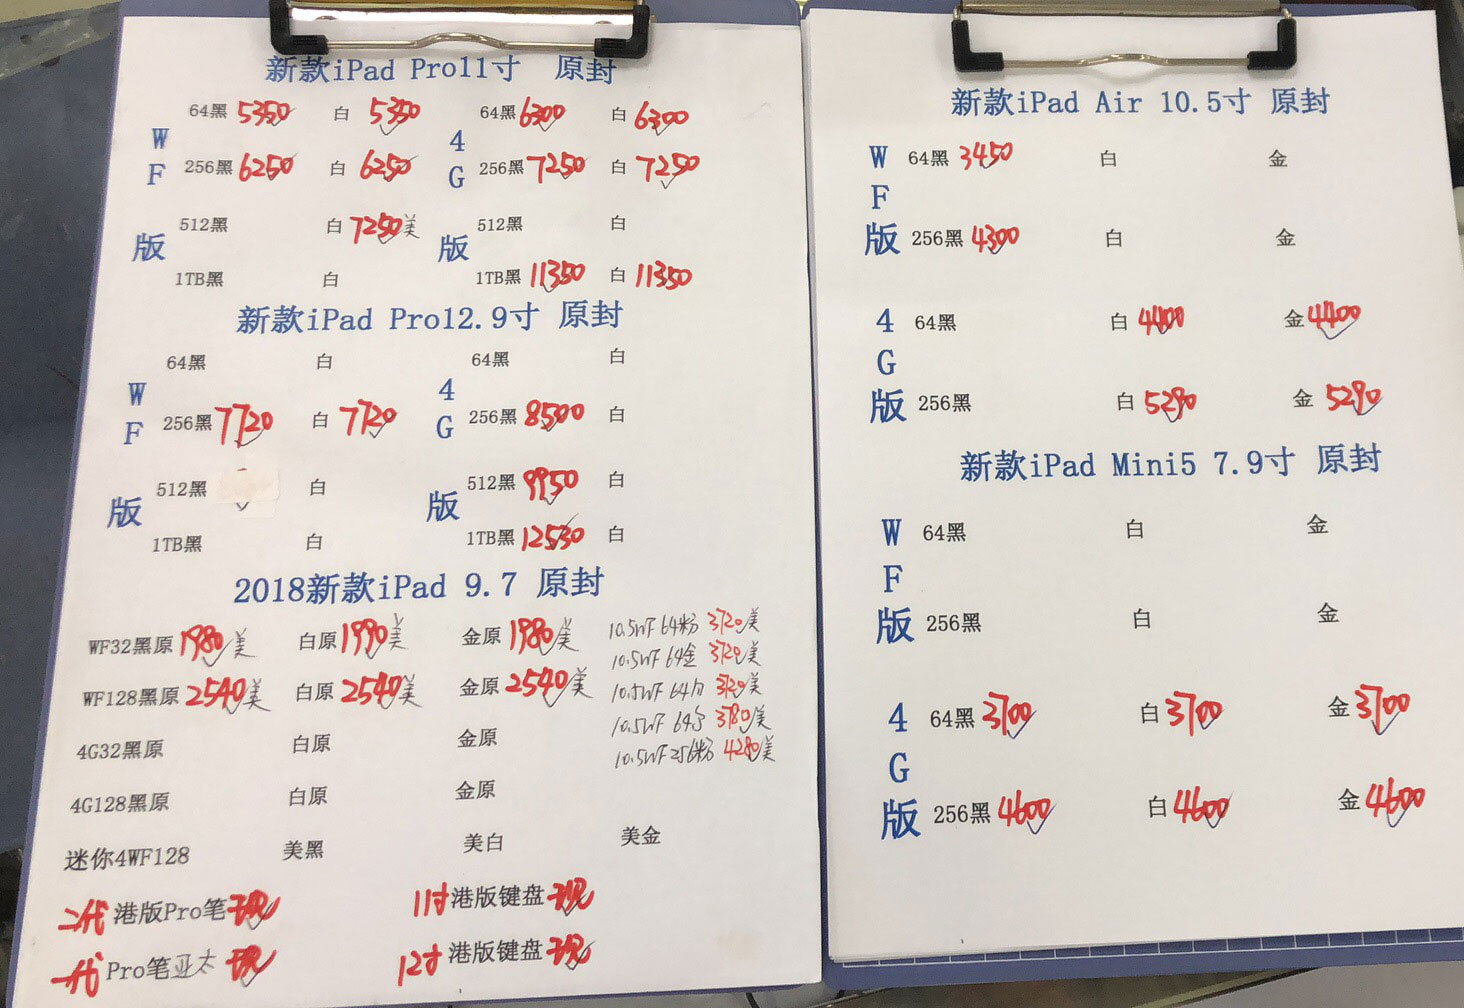 新款iPad Pro11寸 原封
WF版
64黑 5350 白 5350
256黑 6250 白 6250
512黑 白 7250美
1TB黑 白
4G版
64黑 6300 白 6300
256黑 7250 白 7250
512黑 白
1TB黑 11350 白 11350
新款iPad Pro12.9寸 原封
WF版
64黑 白
256黑 7720 白 7720
512黑 白
1TB黑 白
4G版
64黑 白
256黑 8500 白
512黑 9950 白
1TB黑 12530 白
2018新款iPad 9.7 原封
WF32黑原 1980美 白原 1990美 金原 1980美
WF128黑原 2540美 白原 2540美 金原 2540美
4G32黑原 白原 金原
4G128黑原 白原 金原
迷你4WF128 美黑 美白 美金
10.5WF 64粉 3720美
10.5WF 64金 3720美
10.5WF 64白 3720美
10.5WF 64 3780美
10.5WF 256粉 4280美
二代 港版Pro笔 现 11寸 港版键盘 现
一代 Pro笔亚太 现 12寸 港版键盘 现
新款iPad Air 10.5寸 原封
WF版
64黑 3450 白 金
256黑 4300 白 金
4G版
64黑 白 4400 金 4400
256黑 白 5290 金 5290
新款iPad Mini5 7.9寸 原封
WF版
64黑 白 金
256黑 白 金
4G版
64黑 3700 白 3700 金 3700
256黑 4600 白 4600 金 4600